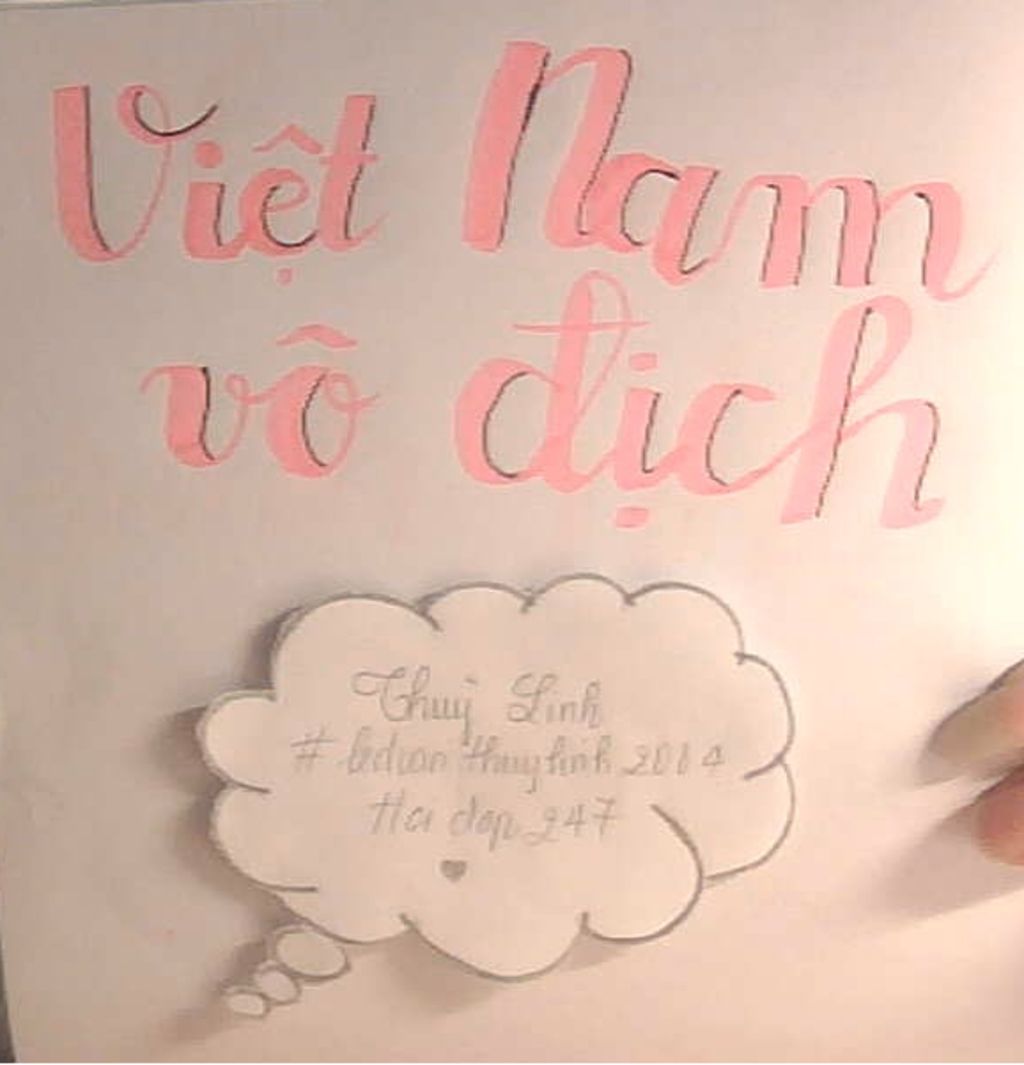 Việt Nam
vô địch
Thuỳ Linh
# ledoanthuylinh2014
247